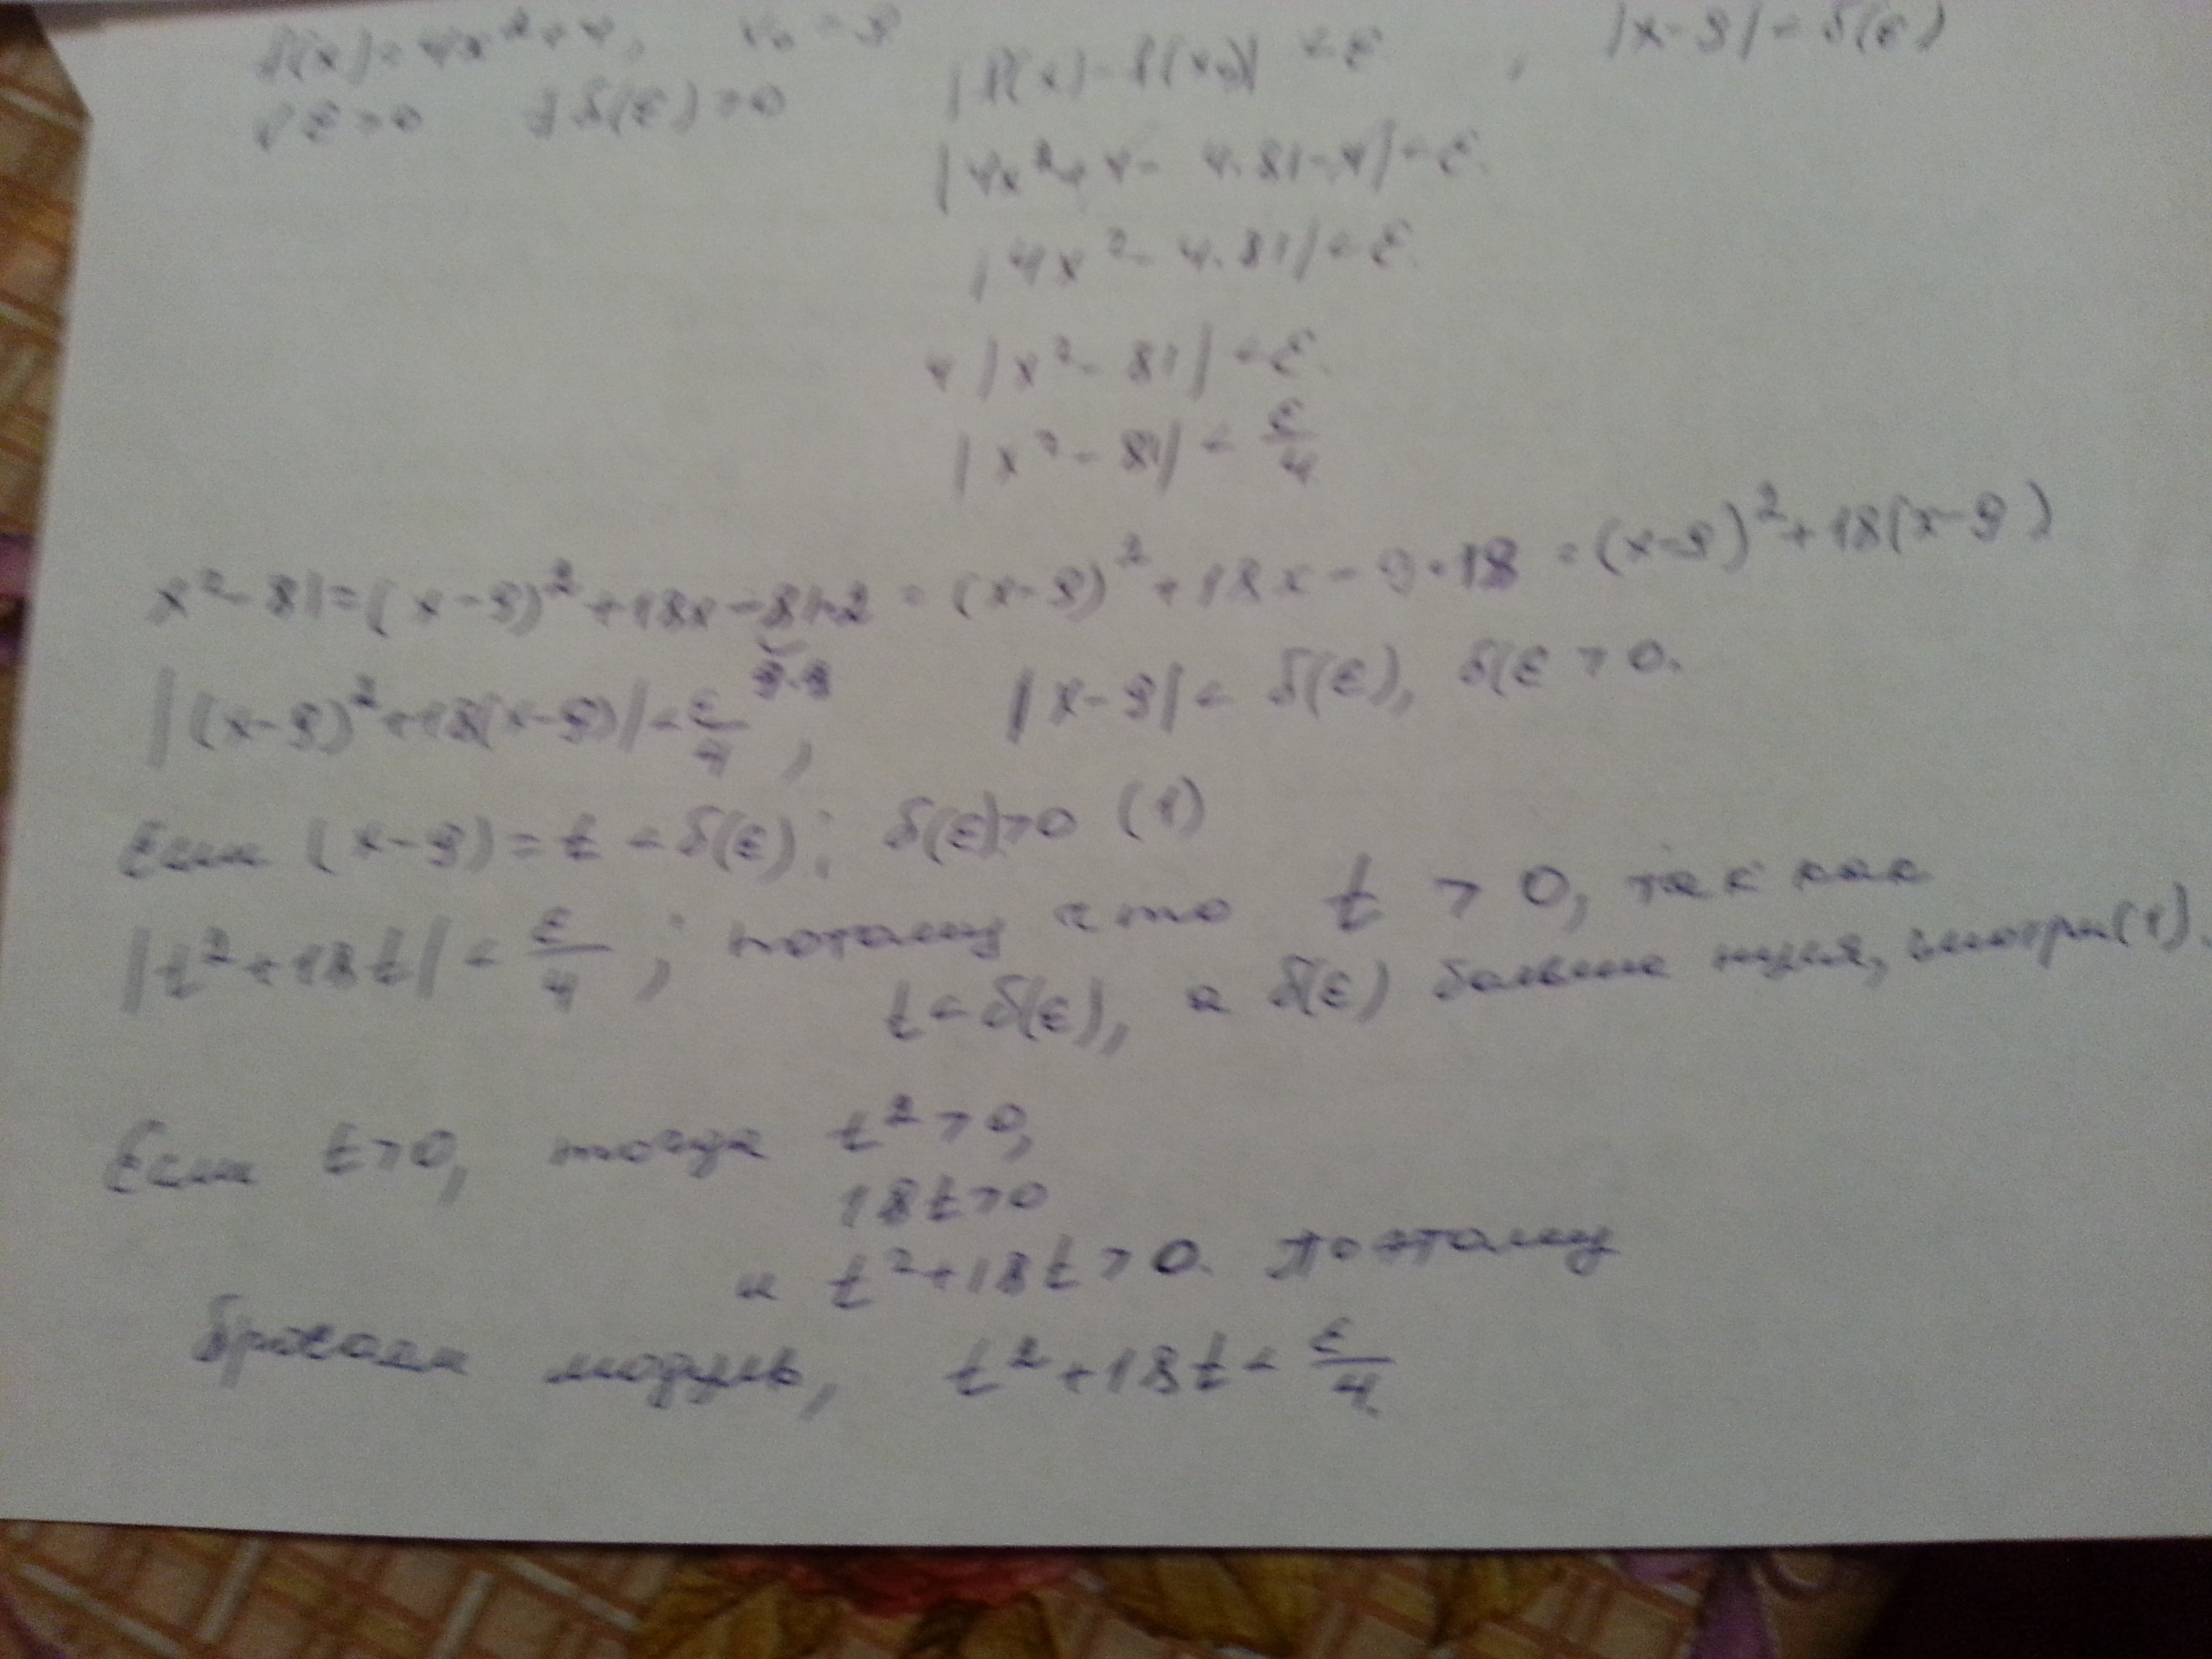 f(x) = 4x² + 4, x₀ = 9
|f(x) - f(x₀)| < ε , |x-9| < δ(ε)
∀ ε > 0 ∃ δ(ε) > 0
|4x² + 4 - 4·81 - 4| < ε.
|4x² - 4·81| < ε.
4|x² - 81| < ε.
|x² - 81| < ε/4
x² - 81 = (x-9)² + 18x - 81·2 = (x-9)² + 18x - 9·18 = (x-9)² + 18(x-9)
9·9
|(x-9)² + 18(x-9)| < ε/4 , |x-9| < δ(ε), δ(ε > 0.
Если (x-9) = t < δ(ε); δ(ε) > 0 (1)
|t² + 18t| < ε/4 ; потому что t > 0, так как
t < δ(ε), а δ(ε) больше нуля, смотри (1).
Если t > 0, тогда t² > 0,
18t > 0
и t² + 18t > 0. Поэтому
бросаем модуль, t² + 18t < ε/4.